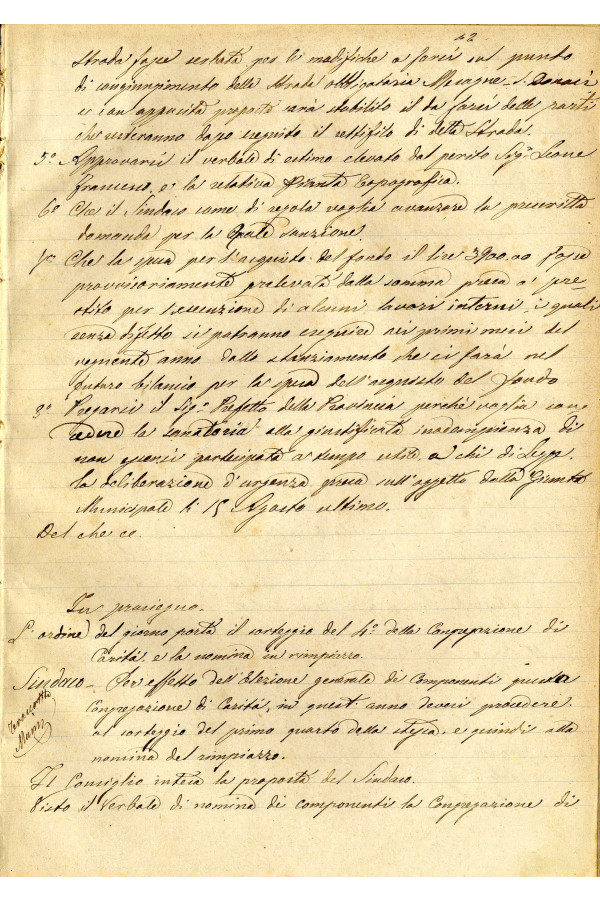 42
Strada fosse serbata per le modifiche a farsi sul punto
di congiungimento della Strada obbligatoria Mesagne - S. Donaci
e con apposita proposta sarà stabilito il da farsi delle parti
che resteranno dopo eseguito il rettifilo di detta Strada.
5º Approvarsi il verbale di estimo elevato dal perito Sigr. Leone
Francesco, e la relativa Pianta topografica.
6º Che il Sindaco come di regola voglia avanzare la prescritta
domanda per la Reale sanzione.
7º Che la spesa per l'acquisto del fondo il lire 3900.00 fosse
provvisoriamente prelevata dalla somma presa a pre
stito per l'esecuzione di alcuni lavori interni, i quali
senza difetto si potranno eseguire nei primi mesi del
vegnente anno dallo stanziamento che si farà nel
futuro bilancio per la spesa dell'acquisto del fondo
8º Pregarsi il Sigr. Prefetto della Provincia perchè voglia con
cedere la sanatoria alla giustificata inadempienza di
non essersi partecipata a tempo utile, a chi di Legge
la deliberazione d'urgenza presa sull'oggetto dalla Giunta
Municipale li 15 Agosto ultimo.
Del che ec.
In prosieguo.
L'ordine del giorno porta il sorteggio del 4º della Congregazione di
Carità, e la nomina in rimpiazzo.
Sindaco - Per effetto dell'Elezione generale di Componenti questa
Congregazione di Carità, in quest'anno devesi procedere
al sorteggio del primo quarto della stessa, e quindi alla
nomina del rimpiazzo.
Il Consiglio intesa la proposta del Sindaco.
Visto il Verbale di nomina di componenti la Congregazione di